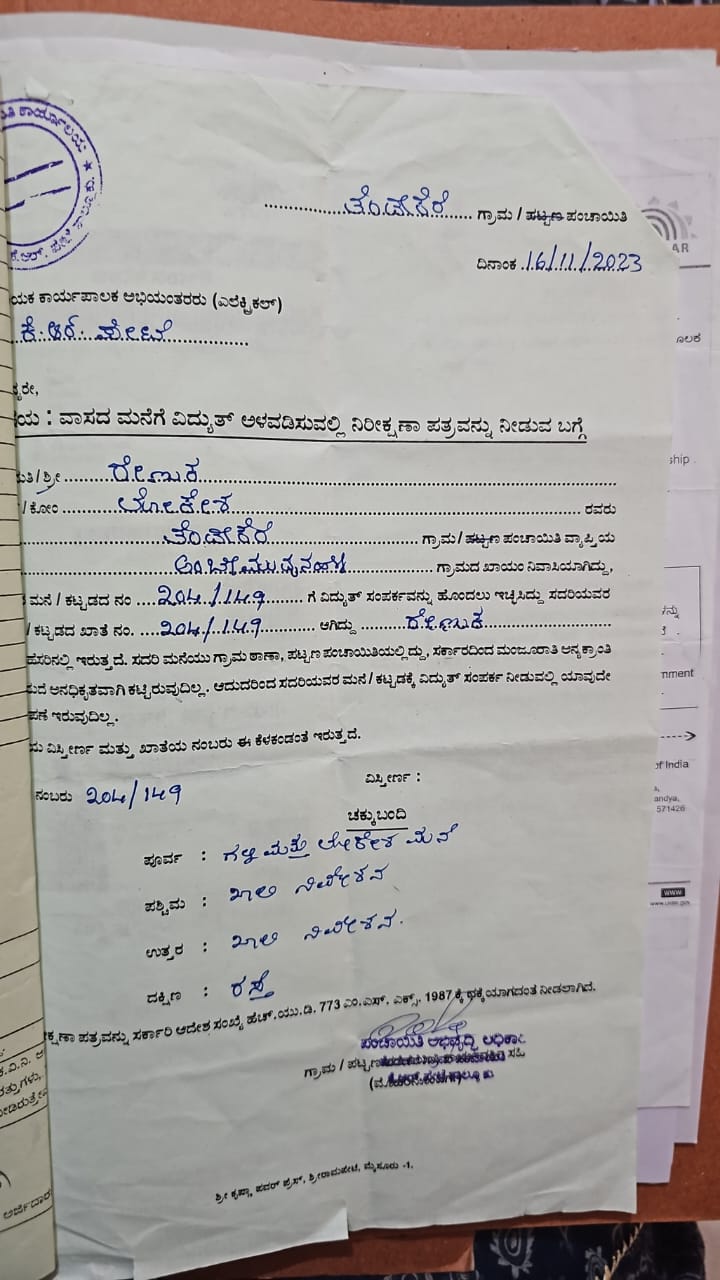 ತಿ ಕಾರ್ಯಾಲಯ ★
ಕೆ.ಆರ್. ಪೇಟೆ ತಾಲ್ಲೂಕು.
ತೆಂಡೇಕೆರೆ ಗ್ರಾಮ / ಪಟ್ಟಣ ಪಂಚಾಯಿತಿ
ದಿನಾಂಕ 16/11/2023
ಯಕ ಕಾರ್ಯಪಾಲಕ ಅಭಿಯಂತರರು (ಎಲೆಕ್ಟ್ರಿಕಲ್)
ಕೆ.ಆರ್. ಪೇಟೆ
್ಯರೇ,
ಯ : ವಾಸದ ಮನೆಗೆ ವಿದ್ಯುತ್ ಅಳವಡಿಸುವಲ್ಲಿ ನಿರೀಕ್ಷಣಾ ಪತ್ರವನ್ನು ನೀಡುವ ಬಗ್ಗೆ
ಮತಿ/ಶ್ರೀ ರೇಣುಕ
/ ಕೋಂ ಲೋಕೇಶ ರವರು
ತೆಂಡೇಕೆರೆ ಗ್ರಾಮ/ಪಟ್ಟಣ ಪಂಚಾಯಿತಿ ವ್ಯಾಪ್ತಿಯ
ಗ್ರಾಮದ ಖಾಯಂ ನಿವಾಸಿಯಾಗಿದ್ದು,
ಮನೆ / ಕಟ್ಟಡದ ನಂ 204/149 ಗೆ ವಿದ್ಯುತ್ ಸಂಪರ್ಕವನ್ನು ಹೊಂದಲು ಇಚ್ಛಿಸಿದ್ದು ಸದರಿಯವರ
/ ಕಟ್ಟಡದ ಖಾತೆ ನಂ. 204/149 ಆಗಿದ್ದು ರೇಣುಕ
ಹೆಸರಿನಲ್ಲಿ ಇರುತ್ತದೆ. ಸದರಿ ಮನೆಯು ಗ್ರಾಮ ಠಾಣಾ, ಪಟ್ಟಣ ಪಂಚಾಯಿತಿಯಲ್ಲಿದ್ದು, ಸರ್ಕಾರದಿಂದ ಮಂಜೂರಾತಿ ಅನ್ಯಕ್ರಾಂತಿ
ಅನಧಿಕೃತವಾಗಿ ಕಟ್ಟಿರುವುದಿಲ್ಲ. ಆದುದರಿಂದ ಸದರಿಯವರ ಮನೆ / ಕಟ್ಟಡಕ್ಕೆ ವಿದ್ಯುತ್ ಸಂಪರ್ಕ ನೀಡುವಲ್ಲಿ ಯಾವುದೇ
ಪಣೆ ಇರುವುದಿಲ್ಲ.
ಯ ವಿಸ್ತೀರ್ಣ ಮತ್ತು ಖಾತೆಯ ನಂಬರು ಈ ಕೆಳಕಂಡಂತೆ ಇರುತ್ತದೆ.
ನಂಬರು 204/149 ವಿಸ್ತೀರ್ಣ :
ಚಕ್ಕುಬಂದಿ
ಪೂರ್ವ : ಗಲ್ಲಿ ಮತ್ತು ಲೋಕೇಶ ಮನೆ
ಪಶ್ಚಿಮ : ಖಾಲಿ ನಿವೇಶನ
ಉತ್ತರ : ಖಾಲಿ ನಿವೇಶನ.
ದಕ್ಷಿಣ : ರಸ್ತೆ
ಕ್ಷಣಾ ಪತ್ರವನ್ನು ಸರ್ಕಾರಿ ಆದೇಶ ಸಂಖ್ಯೆ ಹೆಚ್.ಯು.ಡಿ. 773 ಎಂ.ಎನ್. ಎಕ್ಸ್. 1987 ಕ್ಕೆ ಧಕ್ಕೆಯಾಗದಂತೆ ನೀಡಲಾಗಿದೆ.
ಪಂಚಾಯಿತಿ ಅಭಿವೃದ್ಧಿ ಅಧಿಕಾರಿ
ಗ್ರಾಮ / ಪಟ್ಟಣ ಸಹಿ
ಶ್ರೀ ಕೃಷ್ಣಾ ಪವರ್ ಪ್ರೆಸ್, ಶ್ರೀರಾಮಪೇಟೆ, ಮೈಸೂರು -1.
AR
ship
nment
of India
andya,
571426
WWW
ಅರ್ಜಿದಾರ